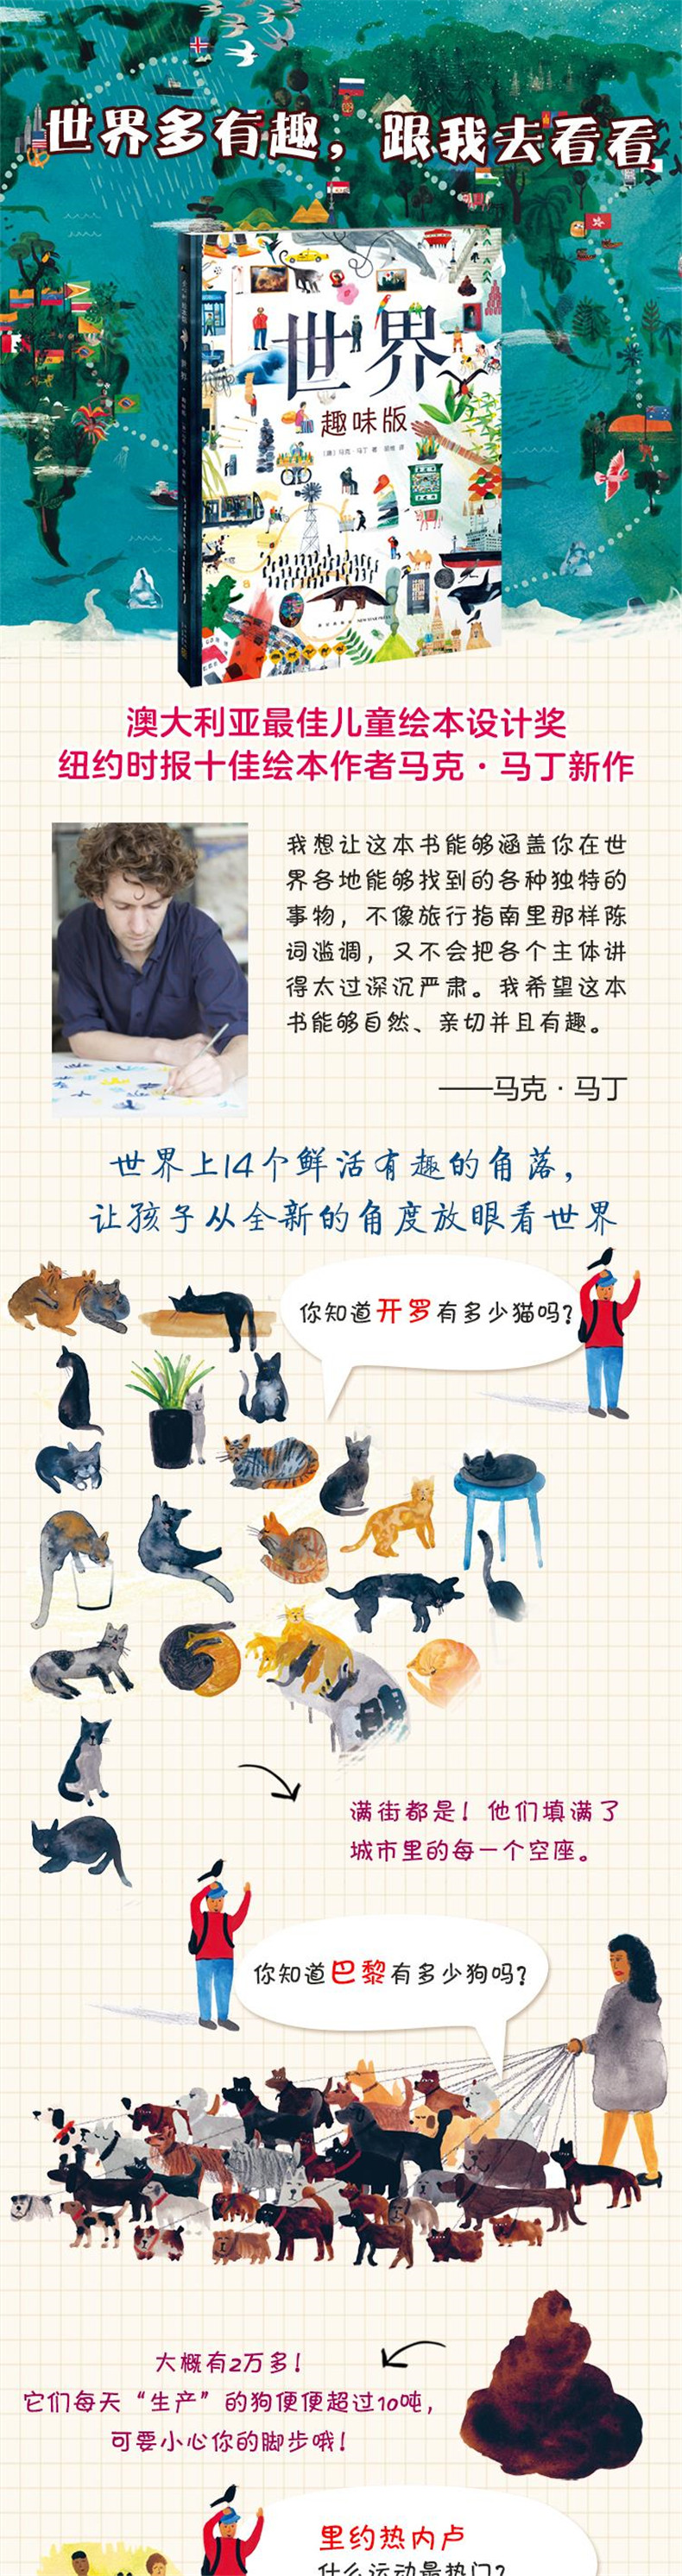 世界多有趣，跟我去看看
世界
趣味版
[澳]马克·马丁 著
澳大利亚最佳儿童绘本设计奖
纽约时报十佳绘本作者马克·马丁新作
我想让这本书能够涵盖你在世
界各地能够找到的各种独特的
事物，不像旅行指南里那样陈
词滥调，又不会把各个主体讲
得太过深沉严肃。我希望这本
书能够自然、亲切并且有趣。
——马克·马丁
世界上14个鲜活有趣的角落，
让孩子从全新的角度放眼看世界
你知道开罗有多少猫吗？
满街都是！他们填满了
城市里的每一个空座。
你知道巴黎有多少狗吗？
大概有2万多！
它们每天“生产”的狗便便超过10吨，
可要小心你的脚步哦！
里约热内卢
什么运动最热门？